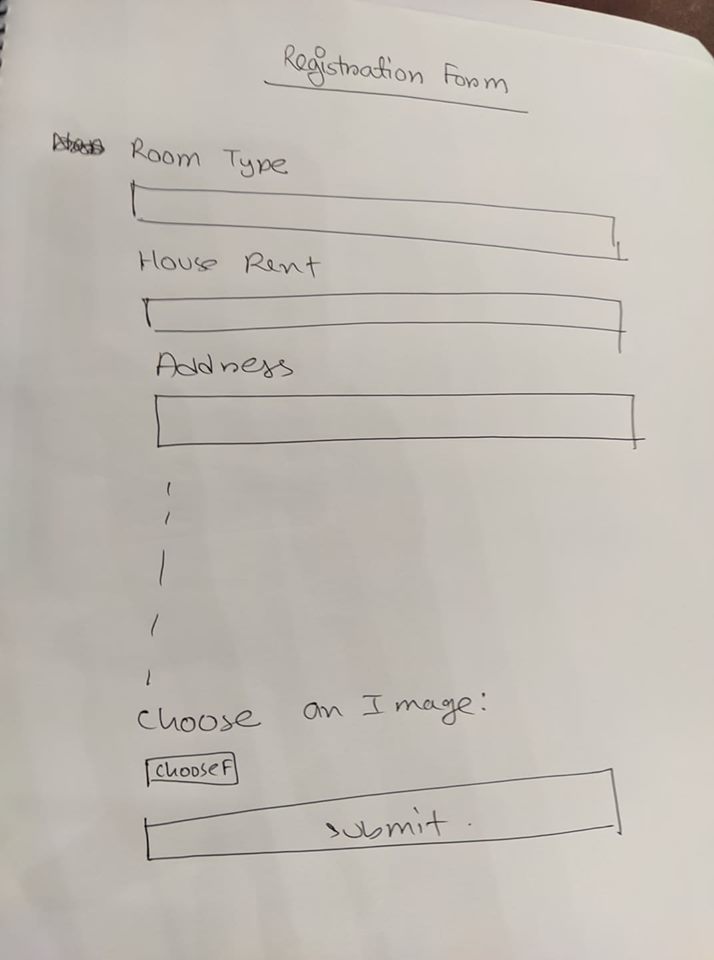 Registration Form
Room Type
House Rent
Address
Choose an Image:
chooseF
submit.